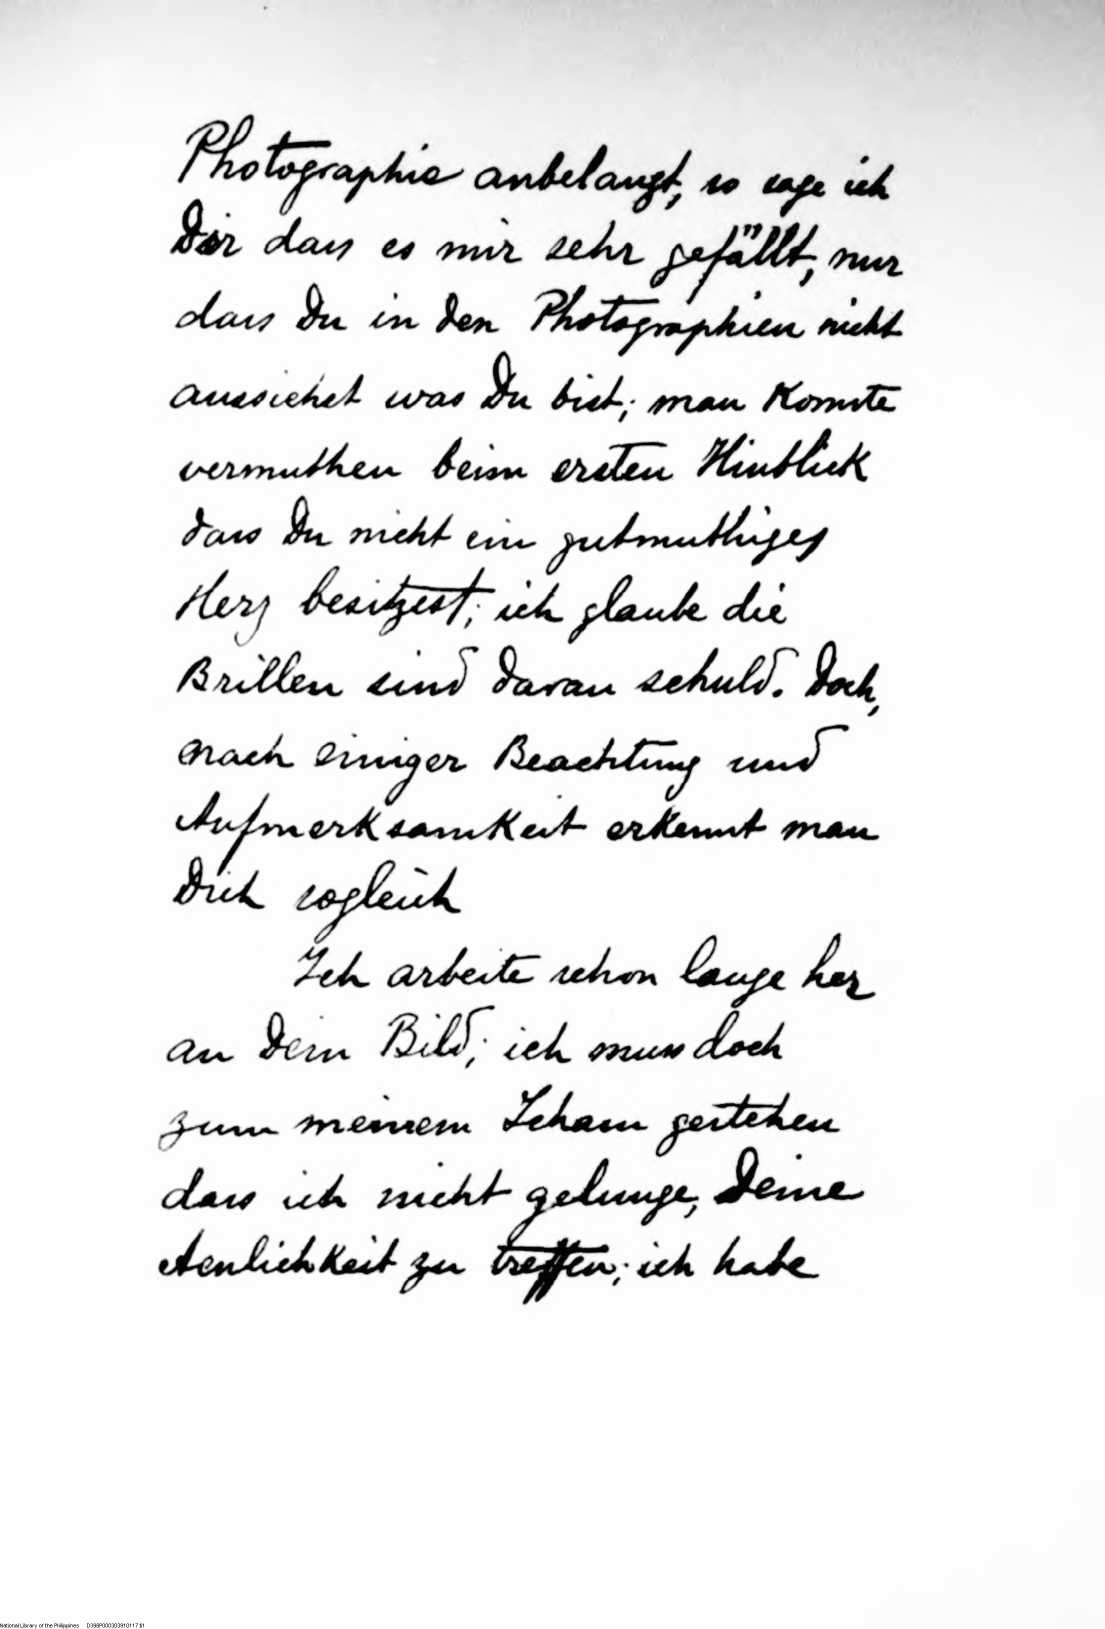 Photographie anbelangt, so sage ich
Dir dass es mir sehr gefällt, nur
dass Du in den Photographien nicht
aussiehst was Du bist; man Konnte
vermuthen beim ersten Hinblick
dass Du nicht ein gutmuthiges
Herz besitzest; ich glaube die
Brillen sind daran schuld. Doch,
nach einiger Beachtung und
AufmerKsamKeit erKennt man
Dich sogleich
Ich arbeite schon lange her
an Dein Bild; ich muss doch
zum meinem Scham gestehen
dass ich nicht gelunge, Deine
AenlichKeit zu treffen; ich habe
National Library of the Philippines